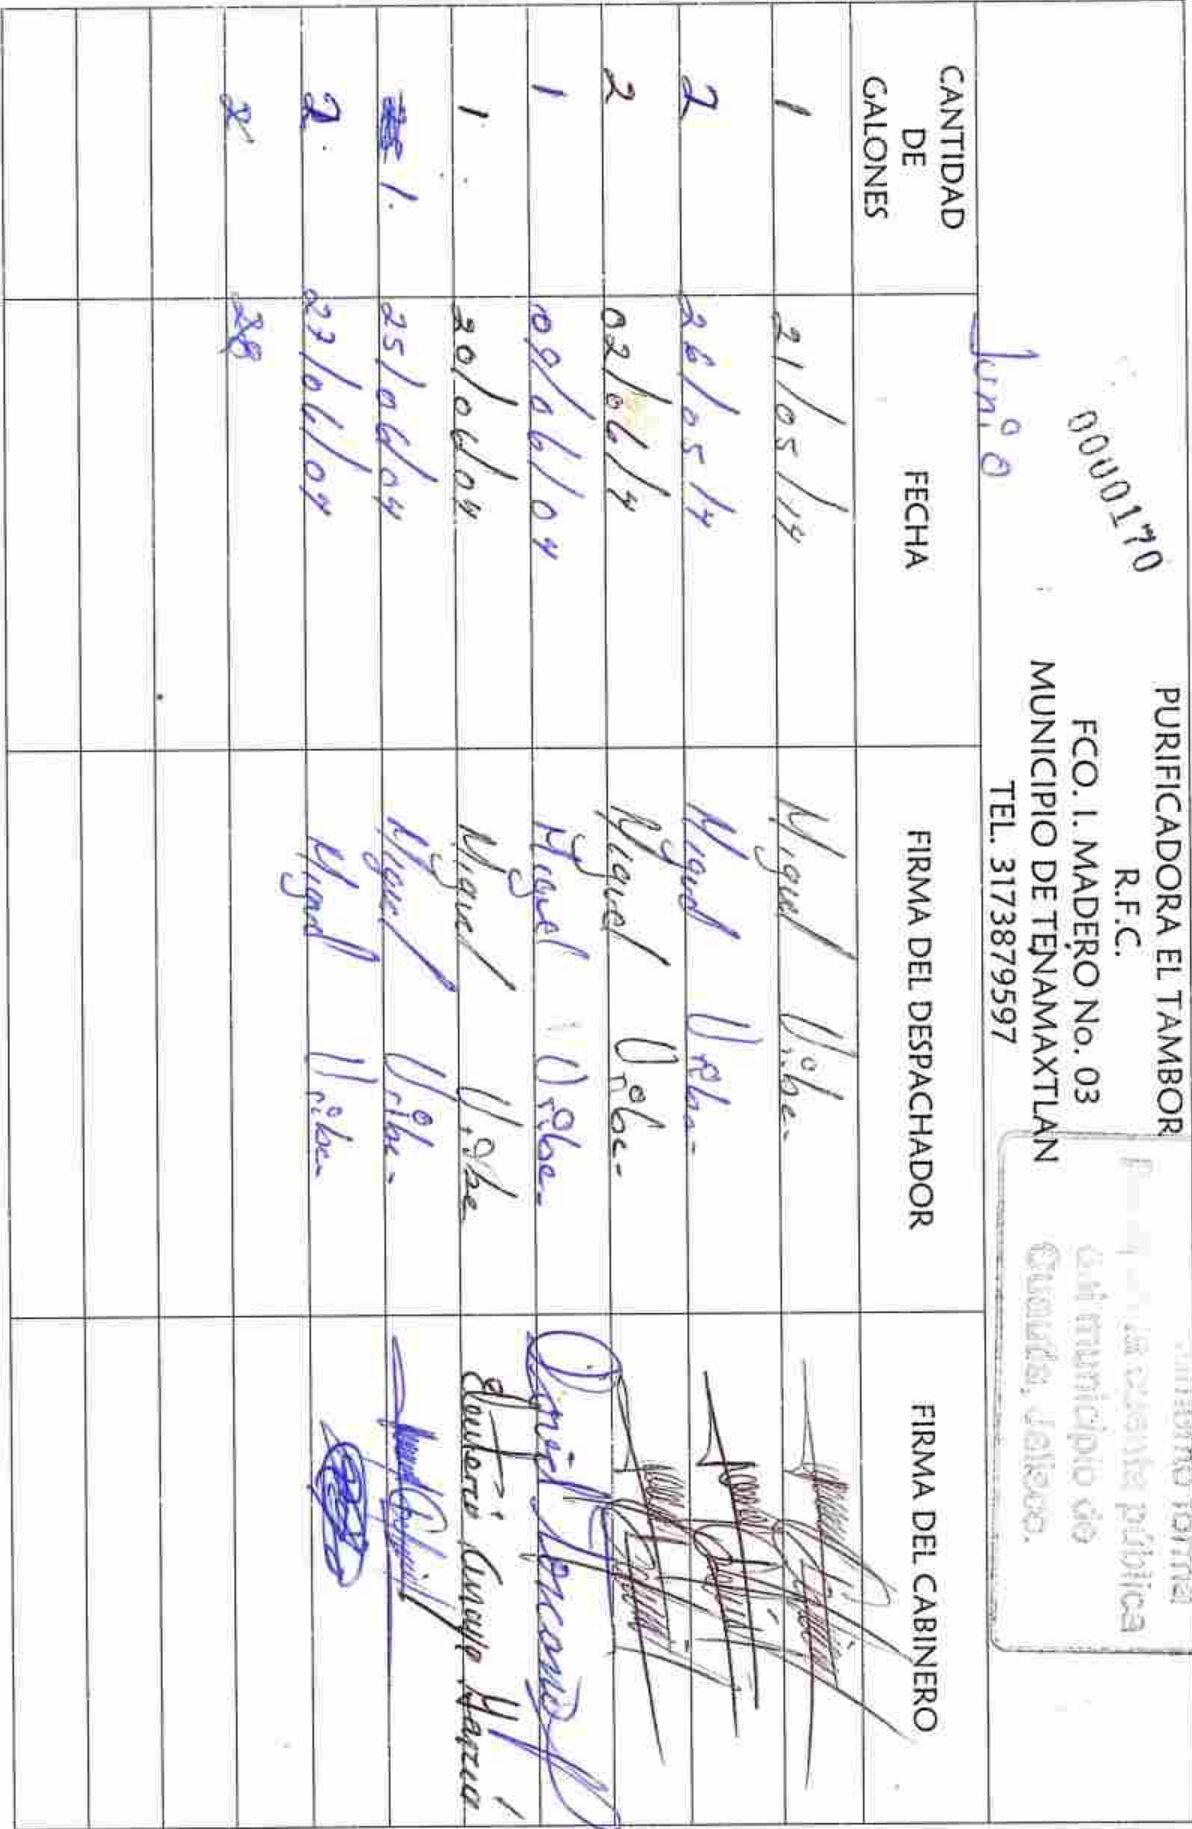 PURIFICADORA EL TAMBOR
R.F.C.
FCO. I. MADERO No. 03
MUNICIPIO DE TENAMAXTLAN
TEL. 3173879597
0000170
Junio
forma
la cuenta pública
del municipio de
Cuautla, Jalisco.
CANTIDAD DE GALONES FECHA FIRMA DEL DESPACHADOR FIRMA DEL CABINERO
1 21/05/14 Miguel Uribe
2 26/05/14 Miguel Uribe
2 02/06/14 Miguel Uribe
1 09/06/04 Miguel Uribe
1 20/06/04 Miguel Uribe Eleuterio Amaya García
1. 25/06/04 Miguel Uribe
2. 27/06/04 Miguel Uribe
2 28